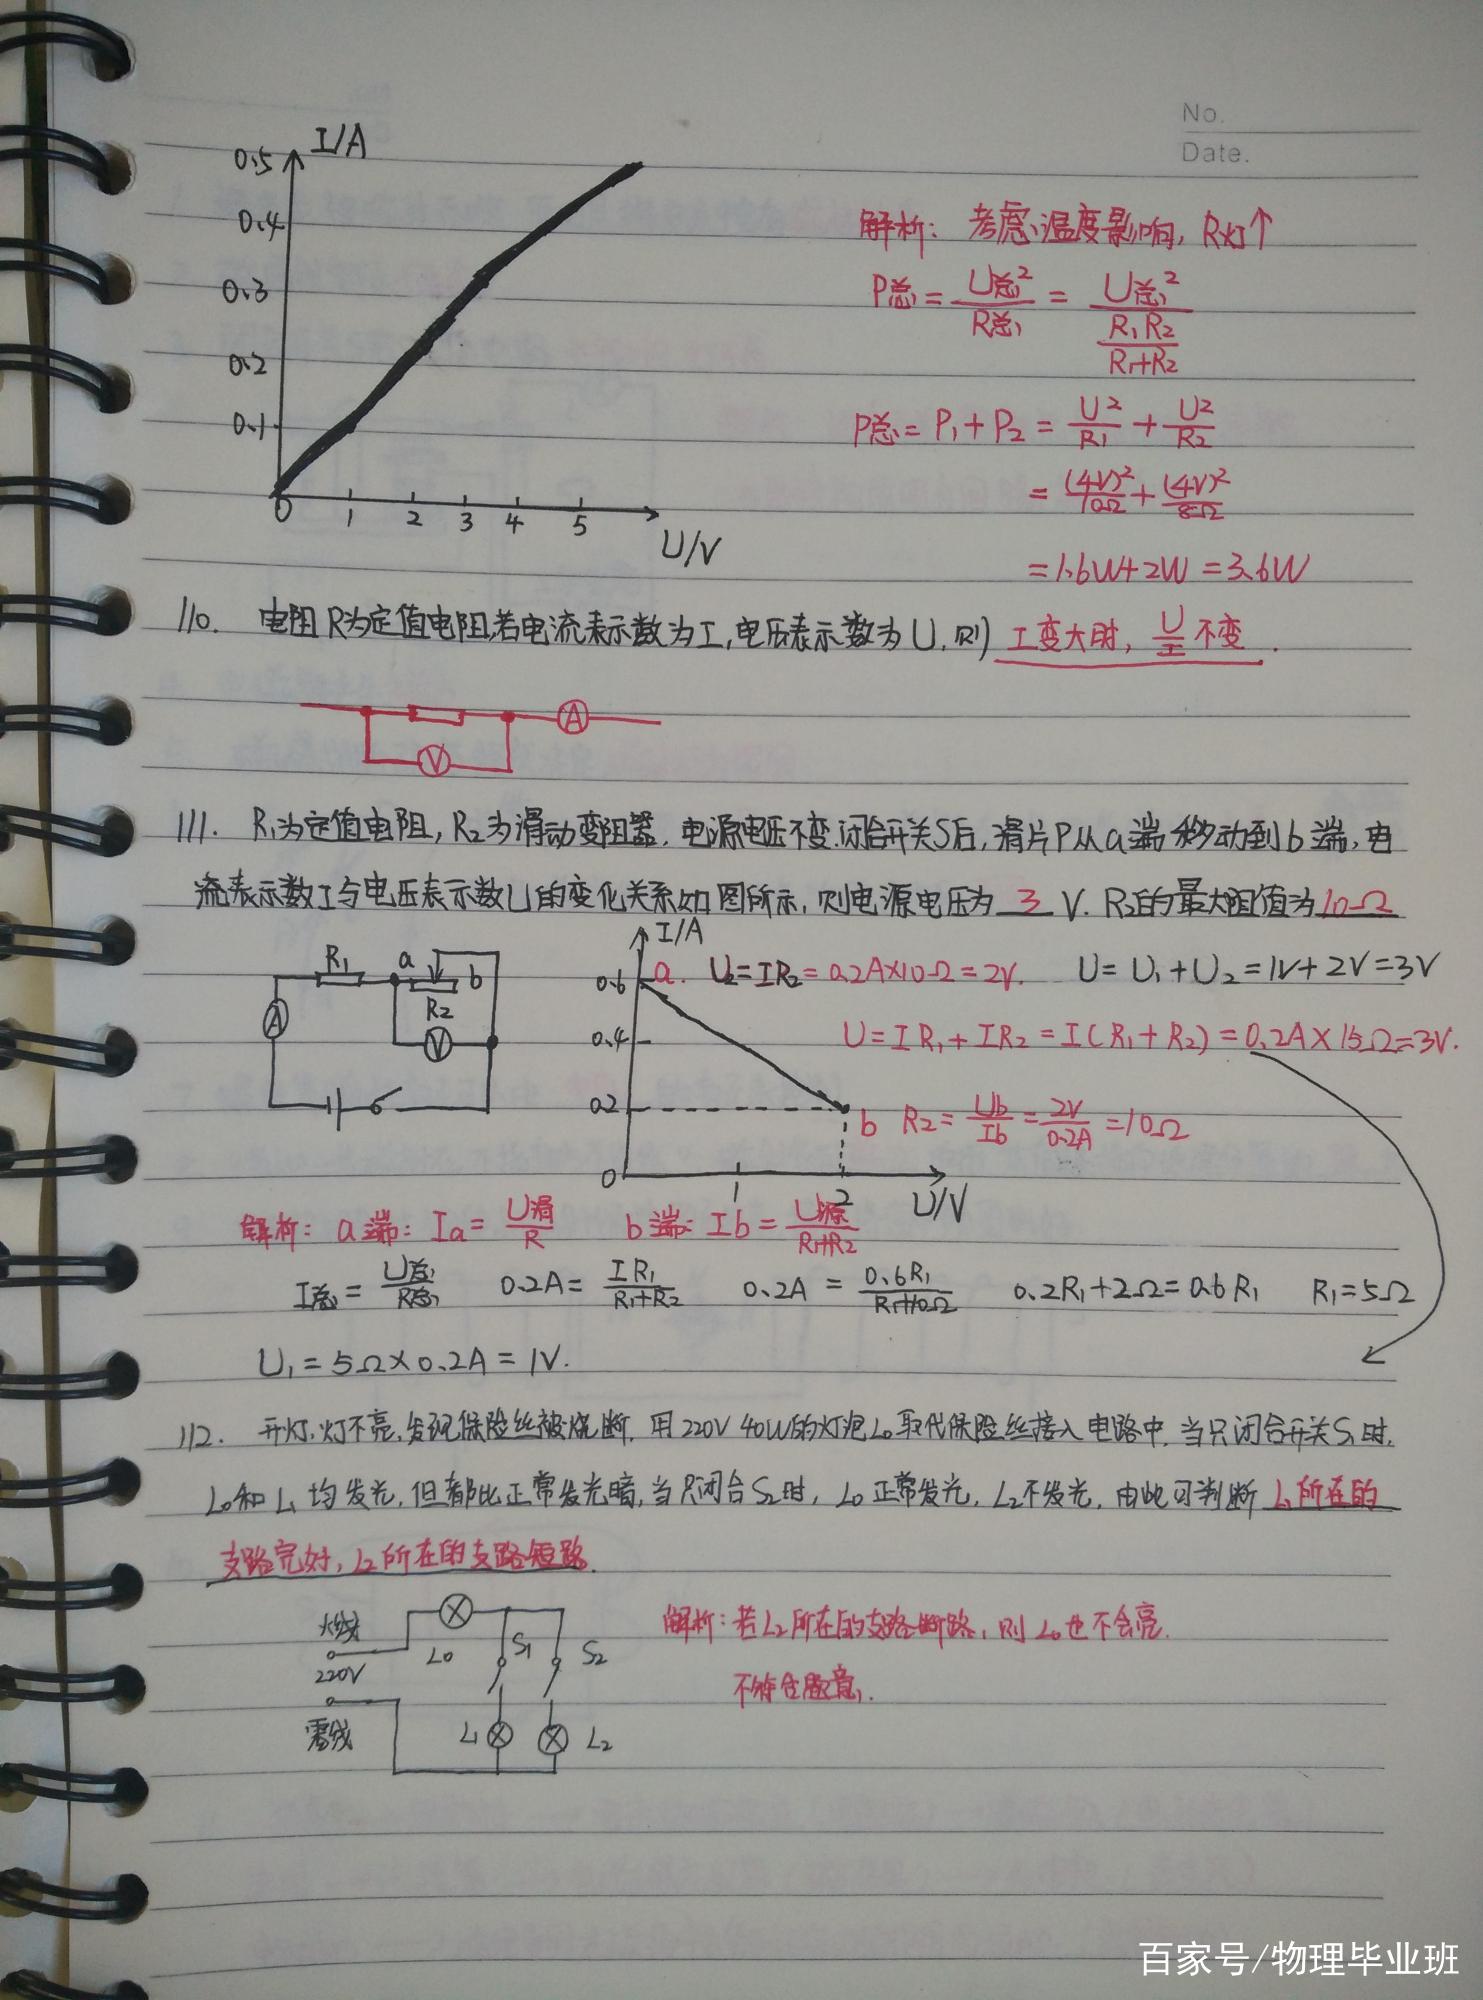 No.
Date.
I/A
0.5
0.4
0.3
0.2
0.1
0 1 2 3 4 5
U/V
解析: 考虑温度影响, R灯↑
P总 = U总²/R总 = U总²/(R₁R₂/(R₁+R₂))
P总 = P₁ + P₂ = U²/R₁ + U²/R₂
= (4V)²/10Ω + (4V)²/8Ω
= 1.6W+2W = 3.6W
110. 电阻R为定值电阻,若电流表示数为I,电压表示数为U,则 I变大时, U/I 不变.
A
V
111. R₁为定值电阻, R₂为滑动变阻器, 电源电压不变.闭合开关S后, 滑片P从a端移动到b端, 电
流表示数I与电压表示数U的变化关系如图所示, 则电源电压为 3 V. R₂的最大阻值为10Ω
R₁ a b
R₂
A
V
I/A
0.6
0.4
0.2
0 1 2
U/V
a. U₂=IR₂=0.2A×10Ω=2V. U=U₁+U₂=1V+2V=3V
U=IR₁+IR₂=I(R₁+R₂)=0.2A×15Ω=3V.
b R₂=Ub/Ib=2V/0.2A=10Ω
解析: a端: Ia=U滑/R b端: Ib=U源/(R₁+R₂)
I总=U总/R总 0.2A=IR₁/(R₁+R₂) 0.2A=0.6R₁/(R₁+10Ω) 0.2R₁+2Ω=0.6R₁ R₁=5Ω
U₁=5Ω×0.2A=1V.
112. 开灯,灯不亮,发现保险丝被烧断. 用220V 40W的灯泡L₀取代保险丝接入电路中. 当只闭合开关S₁时.
L₀和L₁均发光, 但都比正常发光暗, 当只闭合S₂时, L₀正常发光, L₂不发光, 由此可判断 L₁所在的
支路完好, L₂所在的支路短路.
火线
220V
零线
L₀ S₁ S₂
L₁ L₂
解析:若L₂所在的支路断路, 则L₀也不会亮.
不符合题意.
百家号/物理毕业班